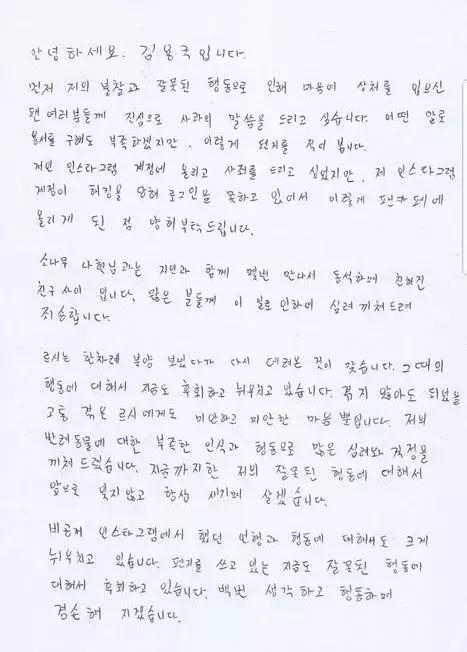 안녕하세요. 김용국입니다.
먼저 저의 불찰과 잘못된 행동으로 인해 마음에 상처를 입으신
팬 여러분들께 진심으로 사과의 말씀을 드리고 싶습니다. 어떤 말로
용서를 구해도 부족하겠지만, 이렇게 편지를 적어 봅니다.
개인 인스타그램 계정에 올리고 사죄를 드리고 싶었지만, 제 인스타그램
계정이 해킹을 당해 로그인을 못하고 있어서 이렇게 팬카페에
올리게 된 점 양해부탁드립니다.
소나무 나현님과는 지인과 함께 몇번 만나서 동석하며 친해진
친구 사이 입니다. 많은 분들께 이 일로 인하여 심려 끼쳐드려
죄송합니다.
르시는 한차례 분양 보냈다가 다시 데려온 것이 맞습니다. 그 때의
행동에 대해서 지금도 후회하고 뉘우치고 있습니다. 겪지 않아도 되었을
고통 겪은 르시에게도 미안하고 미안한 마음 뿐입니다. 저의
반려동물에 대한 부족한 인식과 행동으로 많은 심려와 걱정을
끼쳐 드렸습니다. 지금까지한 저의 잘못된 행동에 대해서
앞으로 잊지않고 항상 새기며 살겠습니다.
비공개 인스타그램에서 했던 언행과 행동에 대해서도 크게
뉘우치고 있습니다. 편지를 쓰고 있는 지금도 잘못된 행동에
대해서 후회하고 있습니다. 백번 생각하고 행동하며
겸손해 지겠습니다.